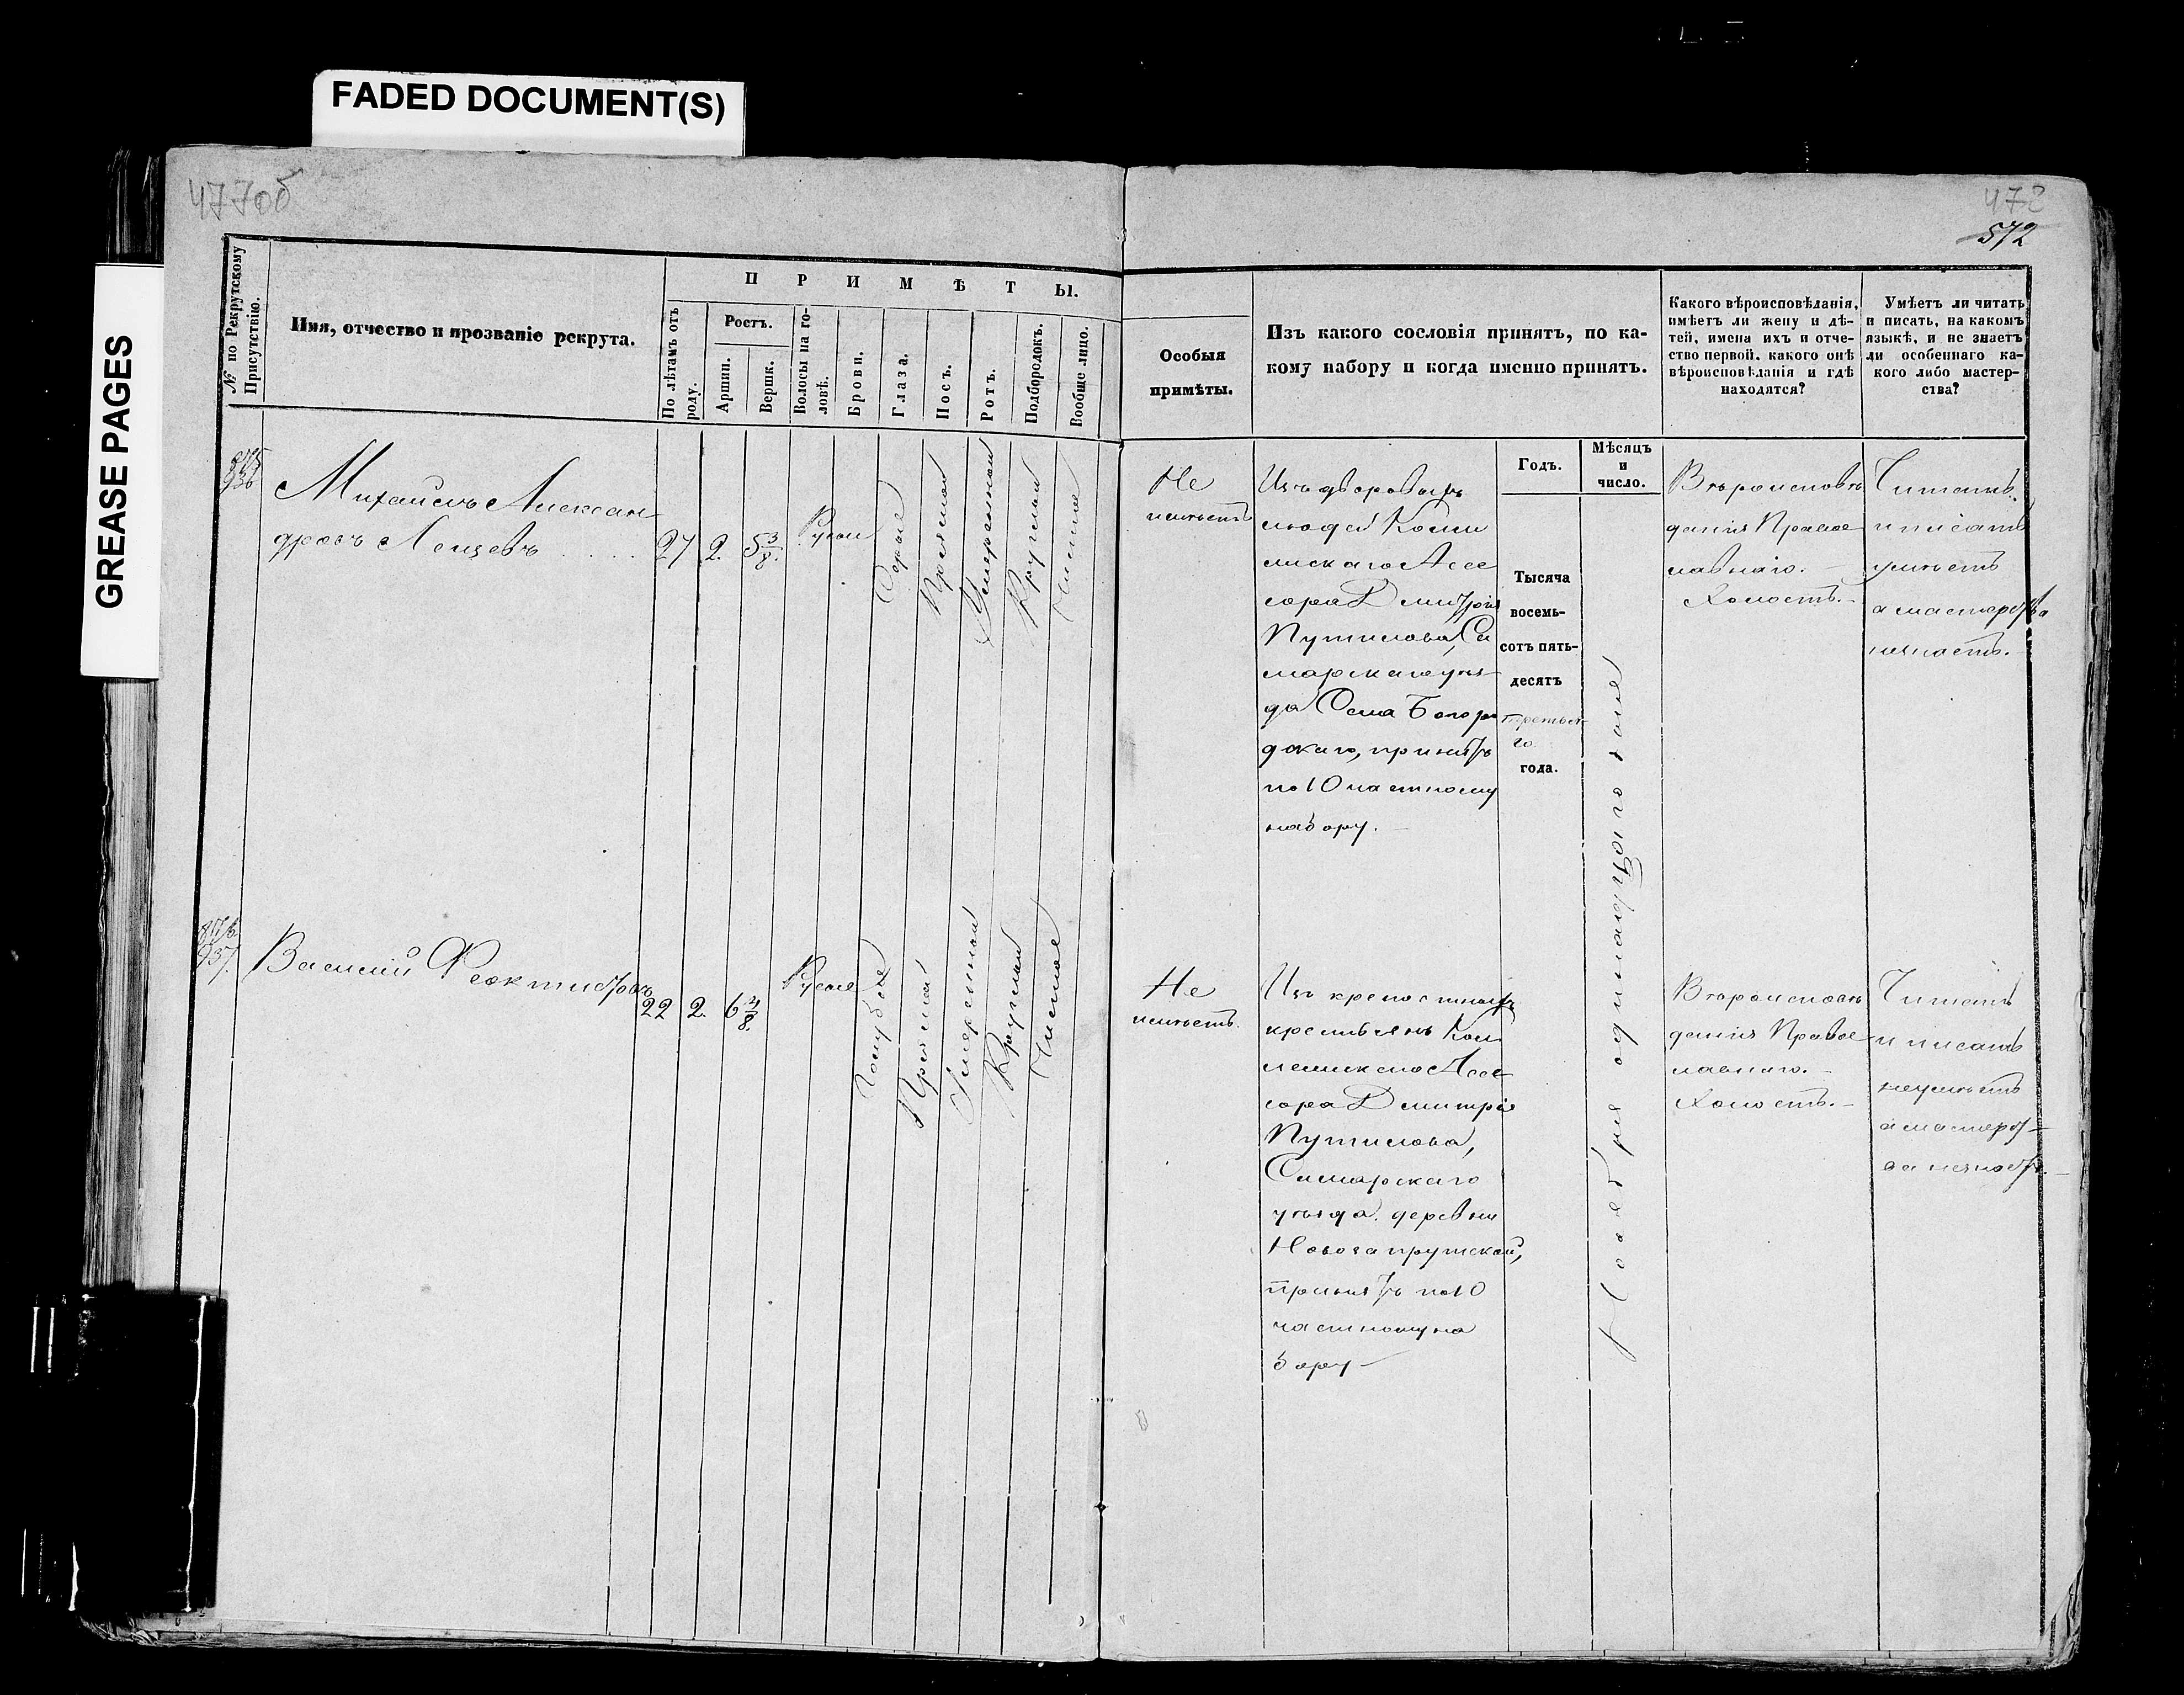 FADED DOCUMENT(S)
GREASE PAGES
477об
478
572
№ по Рекрутскому
Присутствію.
Имя, отчество и прозваніе рекрута.
ПРИМѢТЫ.
По лѣтамъ отъ
роду.
Ростъ.
Аршин.
Вершк.
Волосы на го-
ловѣ.
Брови.
Глаза.
Носъ.
Ротъ.
Подбородокъ.
Вообще лицо.
Особыя
примѣты.
Изъ какого сословія принятъ, по ка-
кому набору и когда именно принятъ.
Какого вѣроисповѣданія,
имѣетъ ли жену и дѣ-
тей, имена ихъ и отче-
ство первой, какого онѣ
вѣроисповѣданія и гдѣ
находятся?
Умѣетъ ли читать
и писать, на какомъ
языкѣ, и не знаетъ
ли особеннаго ка-
кого либо мастер-
ства?
Годъ.
Мѣсяцъ
и
число.
936
Михайлъ Алексан
дровъ
27 2. 5 3/8.
Русые
Сѣрые
Прямой
Умеренный
Круглый
Чистое
Не
имѣетъ
Изъ дворовыхъ
людей Колле
жскаго Ассе
сора Дмитрія
Путилова, Са
марскаго уѣз
да Села Богоро
дскаго, принятъ
по 10 частному
набору.
Тысяча
восемь-
сотъ пять-
десятъ
третья-
го
года.
Ноября одинадцатого дня
Вѣроисповѣ
данія Правос
лавнаго.
Холостъ.
Читать
и писать
умѣетъ
а мастерства
незнаетъ.
876
937.
Василій Феоктистовъ
22 2. 6 4/8.
Русые
Голубые
Прямой
Умеренный
Круглый
Чистое
Не
имѣетъ.
Изъ крепостныхъ
крестьянъ Кол
лежскаго Ассе
сора Дмитрія
Путилова,
Самарскаго
уѣзда деревни
Новозапрудской,
принятъ по 10
частному на
бору
Вѣроисповѣ
данія Правос
лавнаго.
Холостъ.
Читать
и писать
неумѣетъ
а мастерст
ва незнаетъ.